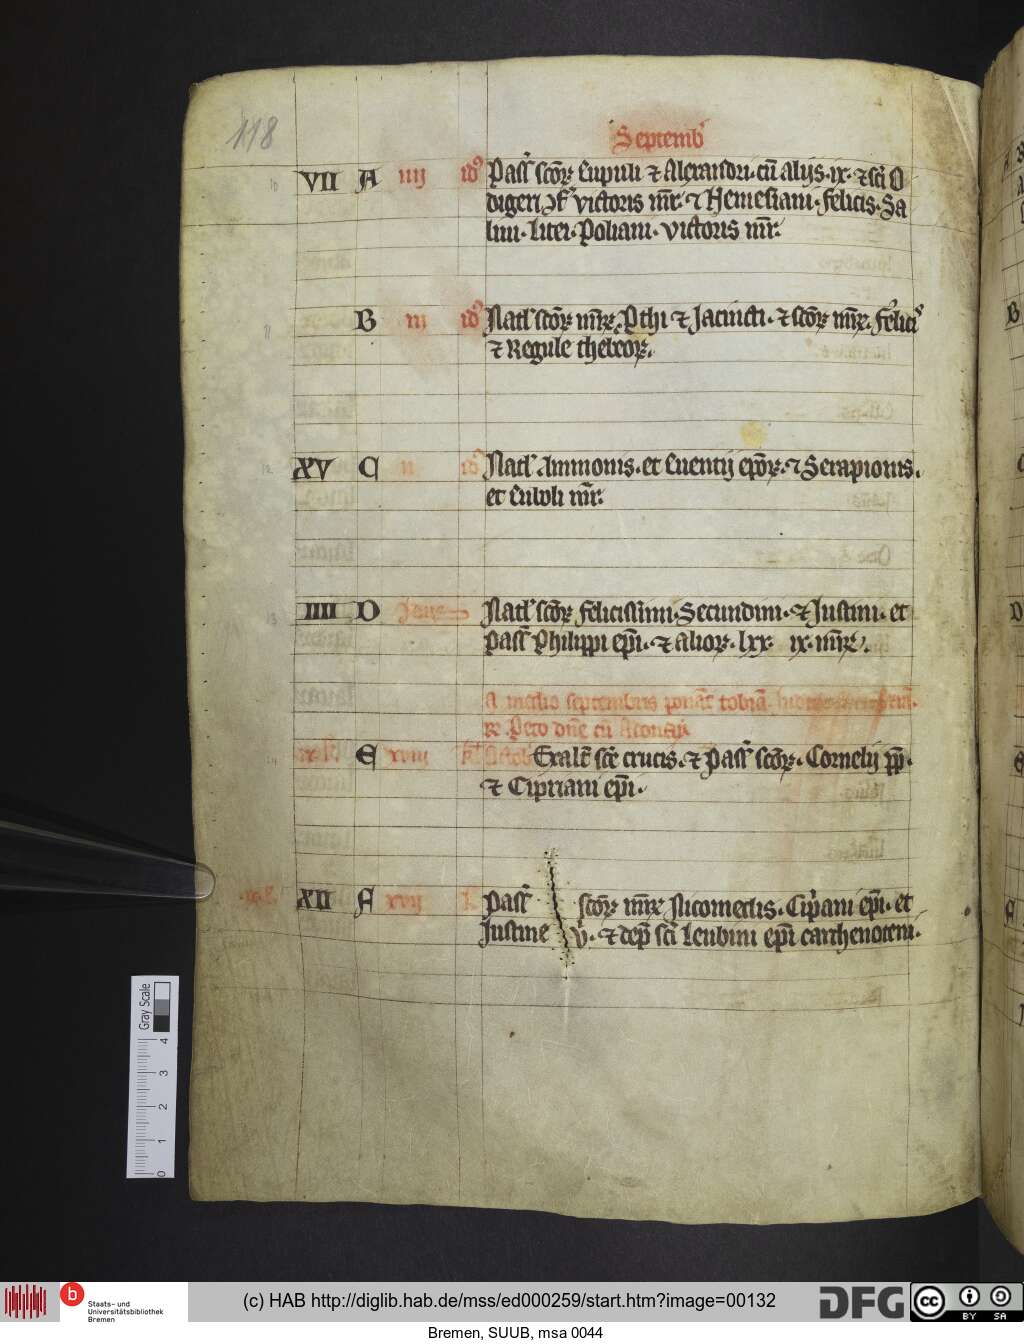 118
Septemb'
10 VII A IIII id9 Pass' sco℞ Eupuli ⁊ Alexandri. cū alijs. ix. ⁊ sc̄i O
digeri ɔf' victoris mr̄. ⁊ Nemesiani. felicis. Sa
lini. Litei. Poliani. victoris mr̄.
11 B III id9 Natl' sco℞ mr̄℞. Pthi ⁊ Jacincti. ⁊ sco℞ mr̄℞. felicis
⁊ Regule thebeo℞.
12 XV C II id' Natl' Ammonis. et Euentij ep̄o℞. ⁊ Serapionis.
et Euuoli mr̄.
13 IIII D Idus Natl' sco℞ felicissimi. Secundini. ⁊ Justini. et
Pass' Philippi ep̄i. ⁊ alio℞. lxx ix. mr̄℞.
A medio septembris ponāt tobiā.
re. Peto dn̄e cū Aō
14 E xviii kl' Octob Exalt' sc̄e crucis. ⁊ Pass' sco℞. Cornelij pp̄.
⁊ Cipriani ep̄i.
XII F xvii k Pass' sco℞ mr̄℞ Nicomedis. Cip'ani ep̄i. et
Justine v̄. ⁊ dep̄ sc̄i Leubini ep̄i carthenoteni.
Gray Scale
4
3
2
1
0
b Staats- und
Universitätsbibliothek
Bremen
(c) HAB http://diglib.hab.de/mss/ed000259/start.htm?image=00132
DFG
cc BY SA
Bremen, SUUB, msa 0044